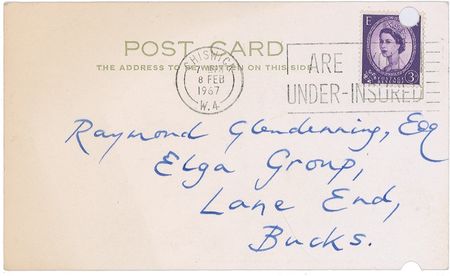 POST CARD
THE ADDRESS TO BE WRITTEN ON THIS SIDE
CHISWICK
8 FEB
1967
W.4
ARE
UNDER-INSURED
E R
3D
Raymond Glendenning, Esq
Elga Group,
Lane End,
Bucks.